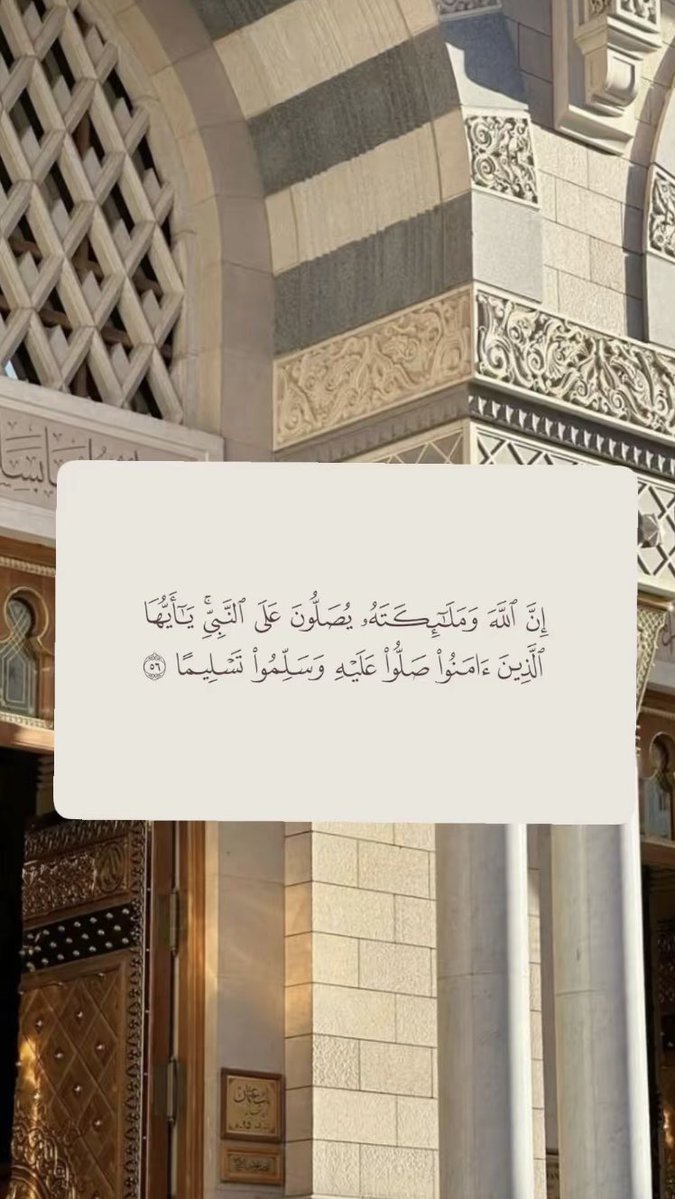 إِنَّ ٱللَّهَ وَمَلَـٰٓئِكَتَهُۥ يُصَلُّونَ عَلَى ٱلنَّبِىِّ ۚ يَـٰٓأَيُّهَا
ٱلَّذِينَ ءَامَنُوا۟ صَلُّوا۟ عَلَيْهِ وَسَلِّمُوا۟ تَسْلِيمًا ٥٦
باب عثمان